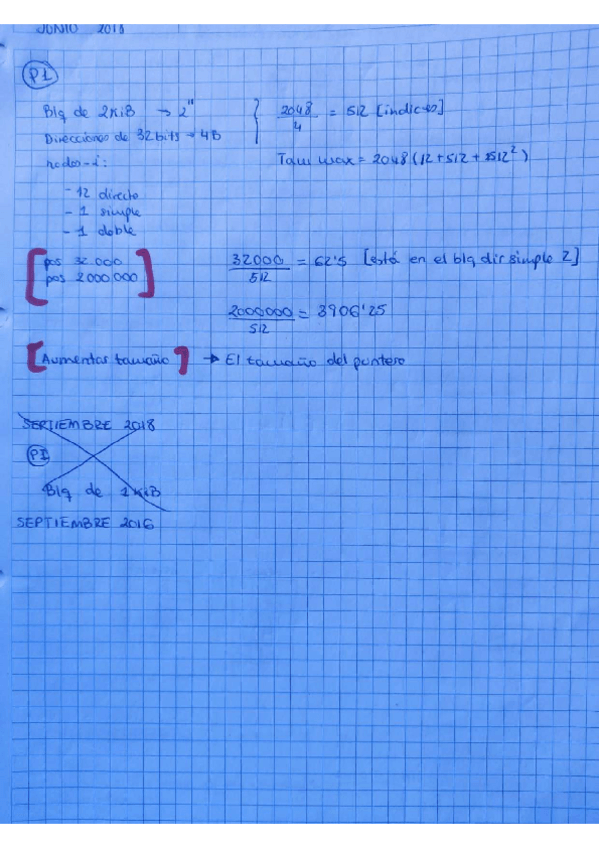 JUNIO 2018
P1
Blq de 2KiB → 2¹¹
Direcciones de 32 bits → 4B
2048/4 = 512 [indices]
nodos-i:
Tam max = 2048 (12 + 512 + 512²)
- 12 directo
- 1 simple
- 1 doble
[pos 32.000
pos 2000000]
32000/512 = 62'5 [está en el blq dir simple 2]
2000000/512 = 3906'25
[Aumentar tamaño] → El tamaño del puntero
SEPTIEMBRE 2018
P1
Blq de 1KiB
SEPTIEMBRE 2016